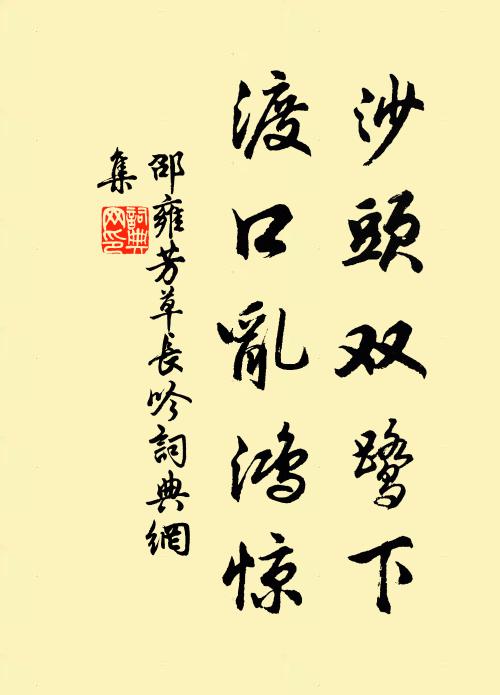 沙頭双鹭下
渡口亂鸿惊
邵雍芳草長吟詞典網
集
詞典
网印